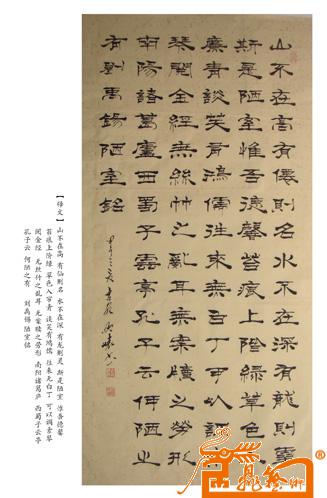 山不在高有僊則名水不在深有龍則靈
斯是陋室惟吾德馨苔痕上階綠草色入
簾青談笑有鴻儒往來無白丁可以調素
琴閱金經無絲竹之亂耳無案牘之勞形
南陽諸葛廬西蜀子雲亭孔子云何陋之
有劉禹錫陋室銘
【释文】山不在高 有仙则名 水不在深 有龙则灵 斯是陋室 惟吾德馨
苔痕上阶绿 草色入帘青 谈笑有鸿儒 往来无白丁 可以调素琴
阅金经 无丝竹之乱耳 无案牍之劳形 南阳诸葛庐 西蜀子云亭
孔子云 何陋之有 刘禹锡陋室铭